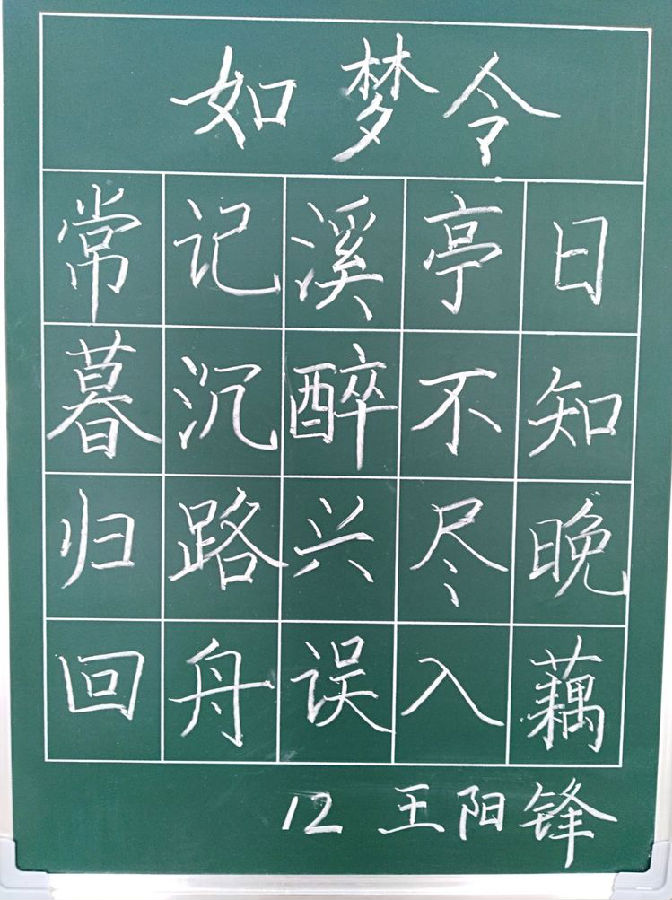 如梦令
常记溪亭日
暮沉醉不知
归路兴尽晚
回舟误入藕
12 王阳锋